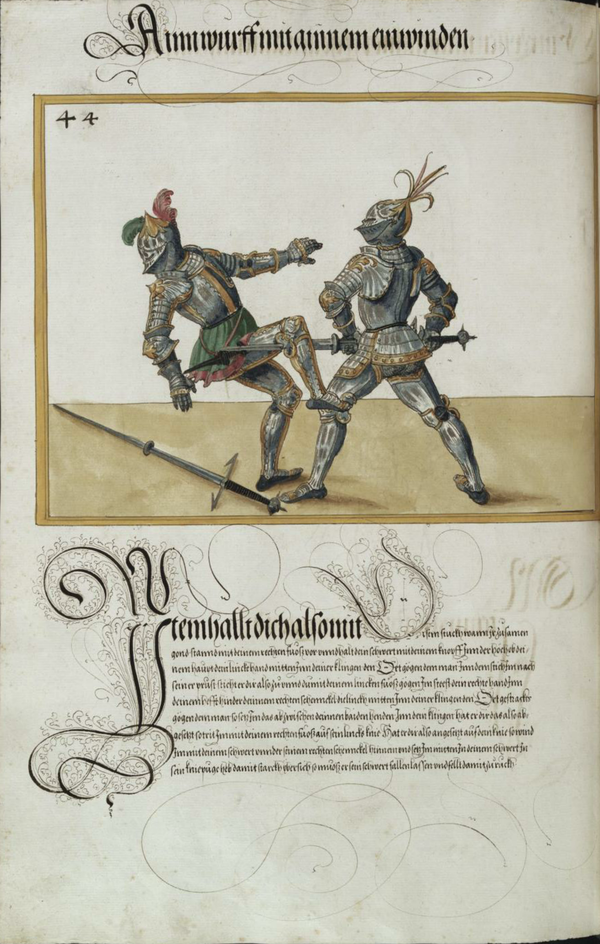 Ain wurff mit ainnem einwinden
44
Item hallt dich also mit
disem stuckh wann Ir zusamen
gond stannd mit deinem rechten fuoss vor vnnd halt dein schwert mit deinem knopff Inn der hoche bei
nem haupt dein linckhe hand mitten Inn deiner klingen den Ort gogen dem man Inn den stich Inn nach
seiner prust sticht er dir also zu vnnd du mit deinem lincken fuoss gogen Im steest dein rechte hand Inn
deinem hefft hinder deinnen rechten schennckel die linckh mitten Inn deiner klingen den Ort gestrackhs
gogen dem man so setz Im das ab zwischen deinnen baiden henden Inn dein klingen hat er dir das also ab
gesetzt so trit Im mit deinem rechten fuoss auf sein lincks knie Hat er dir also angesetzt auf dein knie so wind
Im mit deinem schwert vnnder seinen rechten schennckel hinnein vnd setz Im mitten In deinem schwert In
sein kniepuge heb damit starckh vber sich so muoss er sein schwert fallen lassen vnd fellt damit zu ruckh